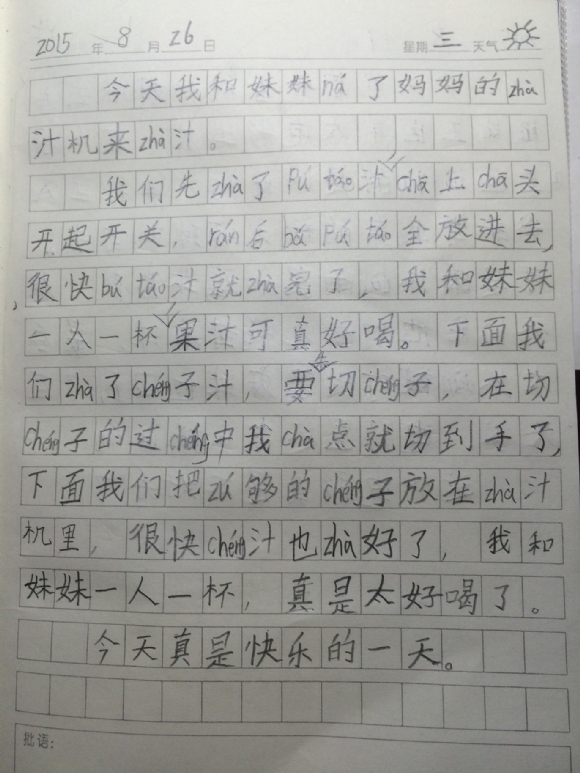 2015年8月26日 星期三 天气
今天我和妹妹ná了妈妈的zhà
汁机来zhà汁。
我们先zhà了Pú táo汁 chā上chā头
开起开关，rán后bǎ Pú táo全放进去，
很快bú táo汁就zhà完了，我和妹妹
一人一杯果汁可真好喝。下面我
们zhà了chéng子汁，要先切chéng子，在切
chéng子的过chéng中我chà点就切到手了，
下面我们把zú够的chéng子放在zhà汁
机里，很快chéng汁也zhà好了，我和
妹妹一人一杯，真是太好喝了。
今天真是快乐的一天。
批语：